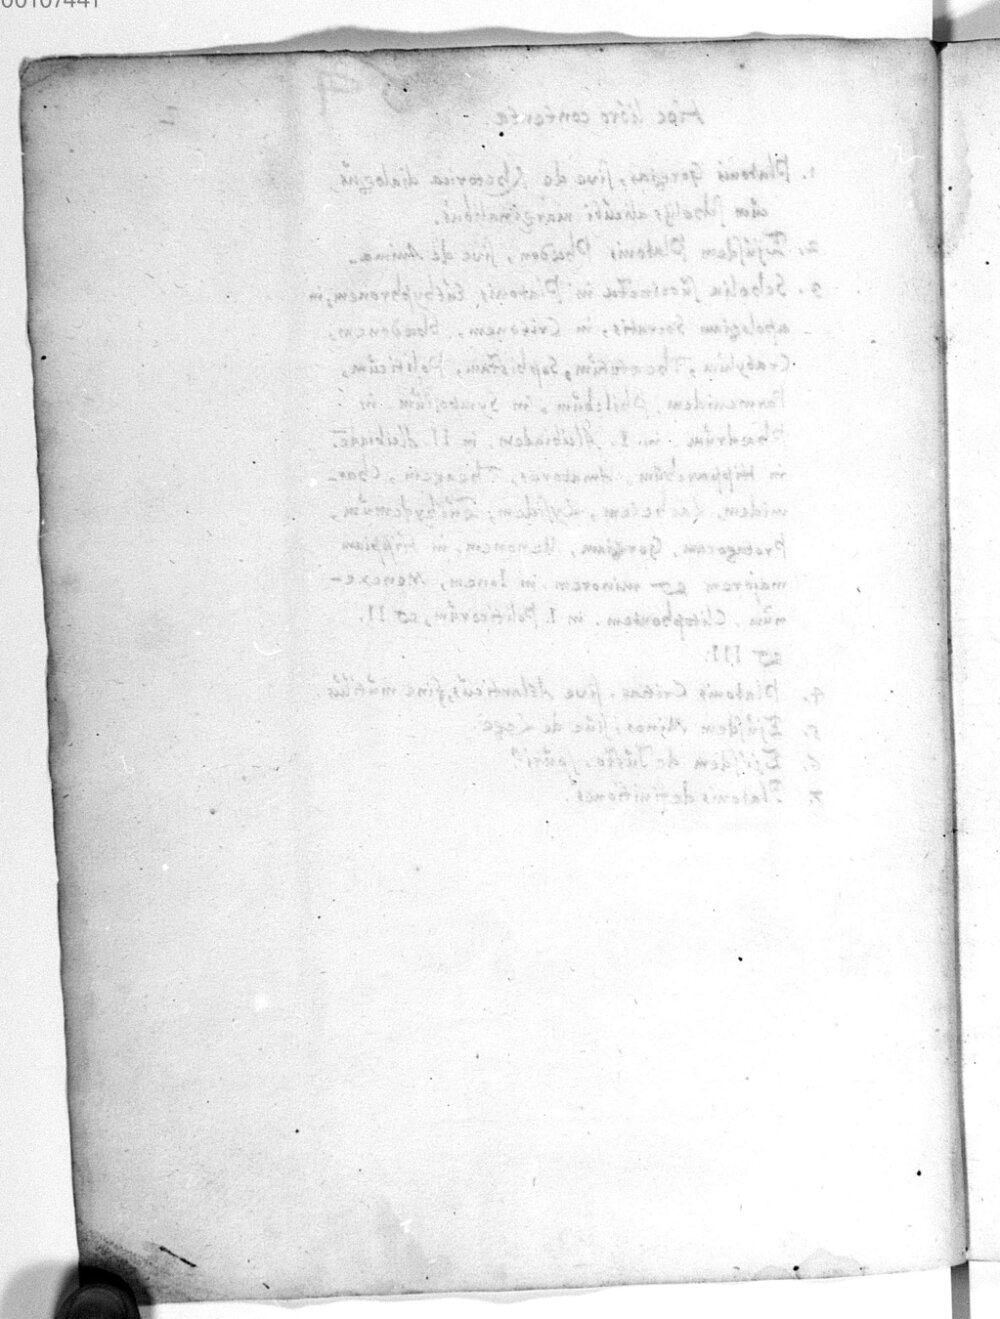 00107441
Hoc libro contenta
1. Platonis Gorgias, sive de Rhetorica dialogus
cum scholijs alicubi marginalibus.
2. Ejusdem Platonis Phædon, sive de Anima.
3. Scholia in Platonis Euthyphronem, in
apologiam Socratis, in Critonem, Phædonem,
Cratylum, Theætetum, Sophistam, Politicum,
Parmenidem, Philebum, in Symposium, in
Phædrum, in I. Alcibiadem, in II. Alcibiadē.
in Hipparchum, Amatores, Theagem, Char-
midem, Lachetem, Lysidem, Euthydemum,
Protagoram, Gorgiam, Menonem, in Hippiam
majorem et minorem, in Ionem, Menexe-
num, Clitophontem, in I. Politicorum, et II.
et III.
4. Platonis Critias, sive Atlanticus, fine mutilus.
5. Ejusdem Minos, sive de Lege
6. Ejusdem de Justo,
7. Platonis definitiones.